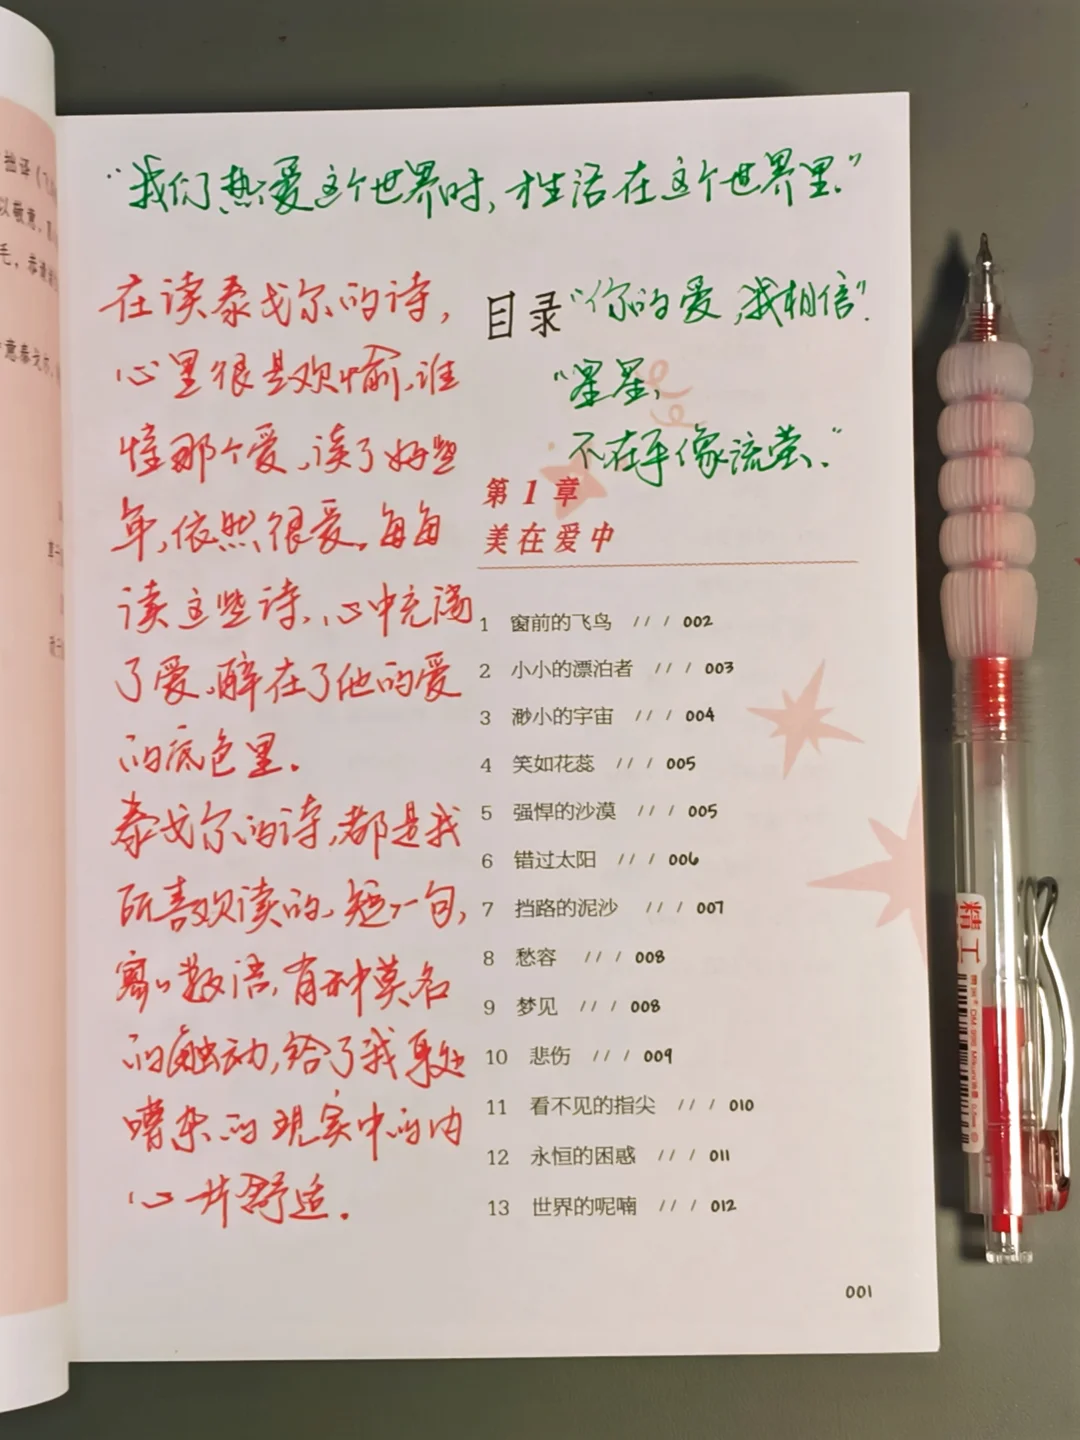 拙译（飞
以敬意，
毛，恭请
意泰戈尔，
“我们热爱这个世界时，才生活在这个世界里。”
在读泰戈尔的诗，
心里很是欢愉，谁
怪那个爱，读了好些
年，依然很爱，每每
读这些诗，心中充满
了爱，醉在了他的爱
的底色里。
泰戈尔的诗，都是我
所喜欢读的，短一句，
寥寥数语，有种莫名
的触动，给了我身处
嘈杂的现实中的内
心一片舒适。
目录
“你的爱，我相信”.
“星星，
不在乎像流萤。”
第1章
美在爱中
1 窗前的飞鸟 /// 002
2 小小的漂泊者 /// 003
3 渺小的宇宙 /// 004
4 笑如花蕊 /// 005
5 强悍的沙漠 /// 005
6 错过太阳 /// 006
7 挡路的泥沙 /// 007
8 愁容 /// 008
9 梦见 /// 008
10 悲伤 /// 009
11 看不见的指尖 /// 010
12 永恒的困惑 /// 011
13 世界的呢喃 /// 012
001
精工